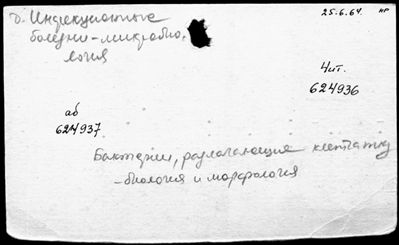 25.6.64. нр
д. Инфекционные
болезни-микробио.
логия
Чит.
624936
аб
624937
Бактерии, разлагающие клетчатку
-биология и морфология